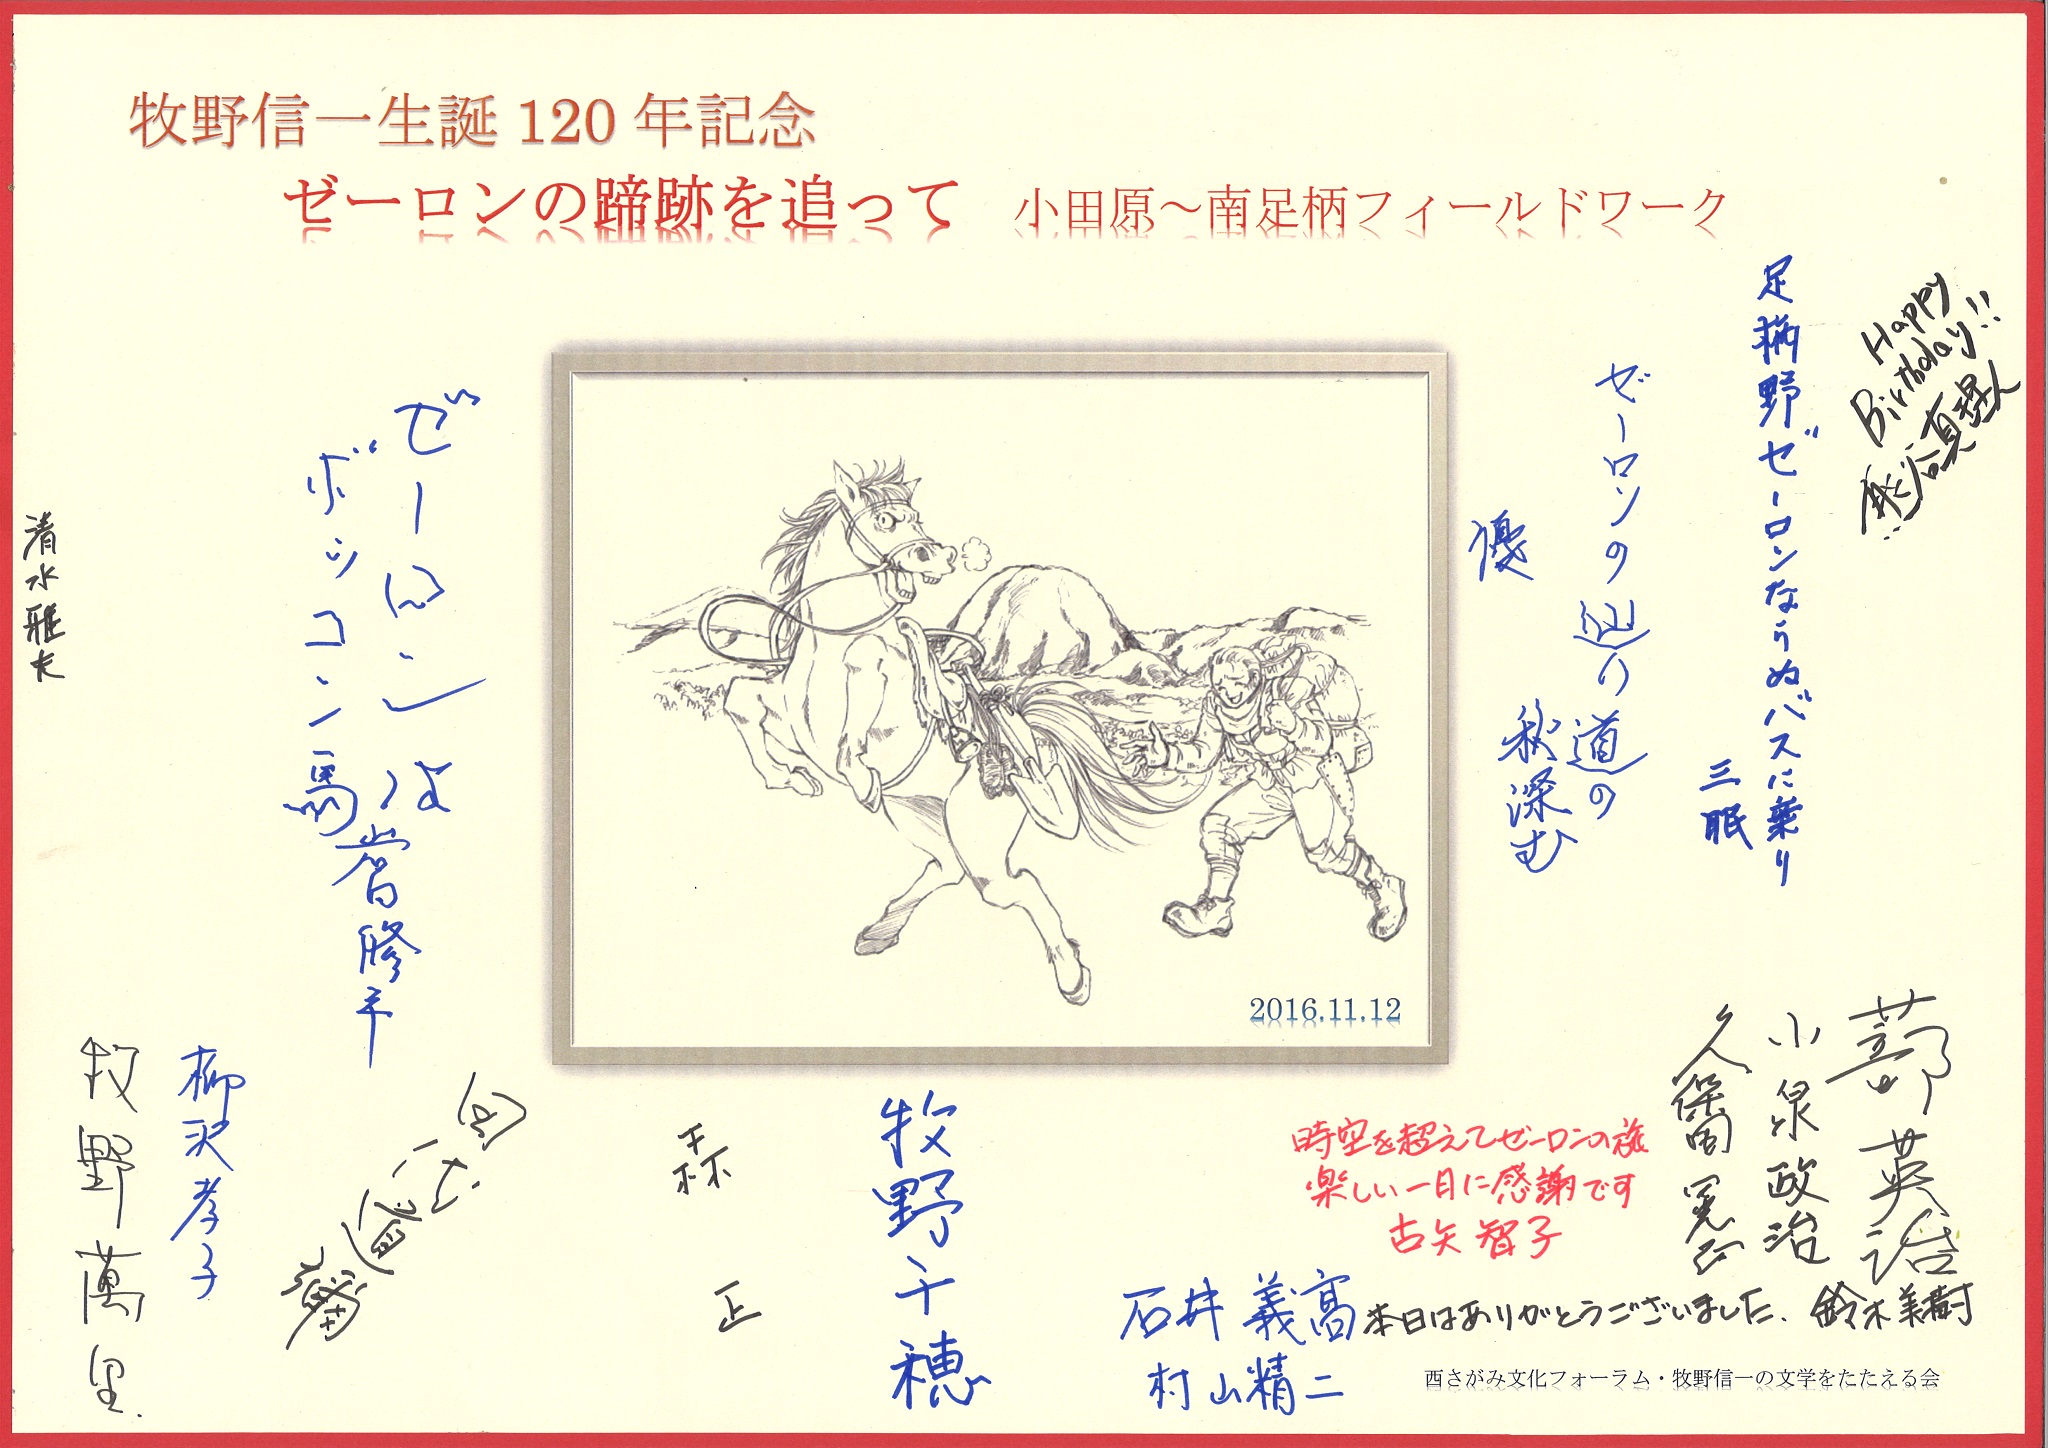 牧野信一生誕120年記念
ゼーロンの蹄跡を追って 小田原～南足柄フィールドワーク
Happy
Birthday!!
足柄野ゼーロンならぬバスに乗り
三眠
ゼーロンの辿り道の
秋深む
優
ゼーロンは
ポッコン馬
清水雅夫
2016.11.12
英治
小泉政治
久保田
時空を超えてゼーロンの旅
楽しい一日に感謝です
古矢智子
牧野千穂
森 正
柳沢孝子
牧野萬里
石井義高
本日はありがとうございました、鈴木美樹
村山精二
西さがみ文化フォーラム・牧野信一の文学をたたえる会